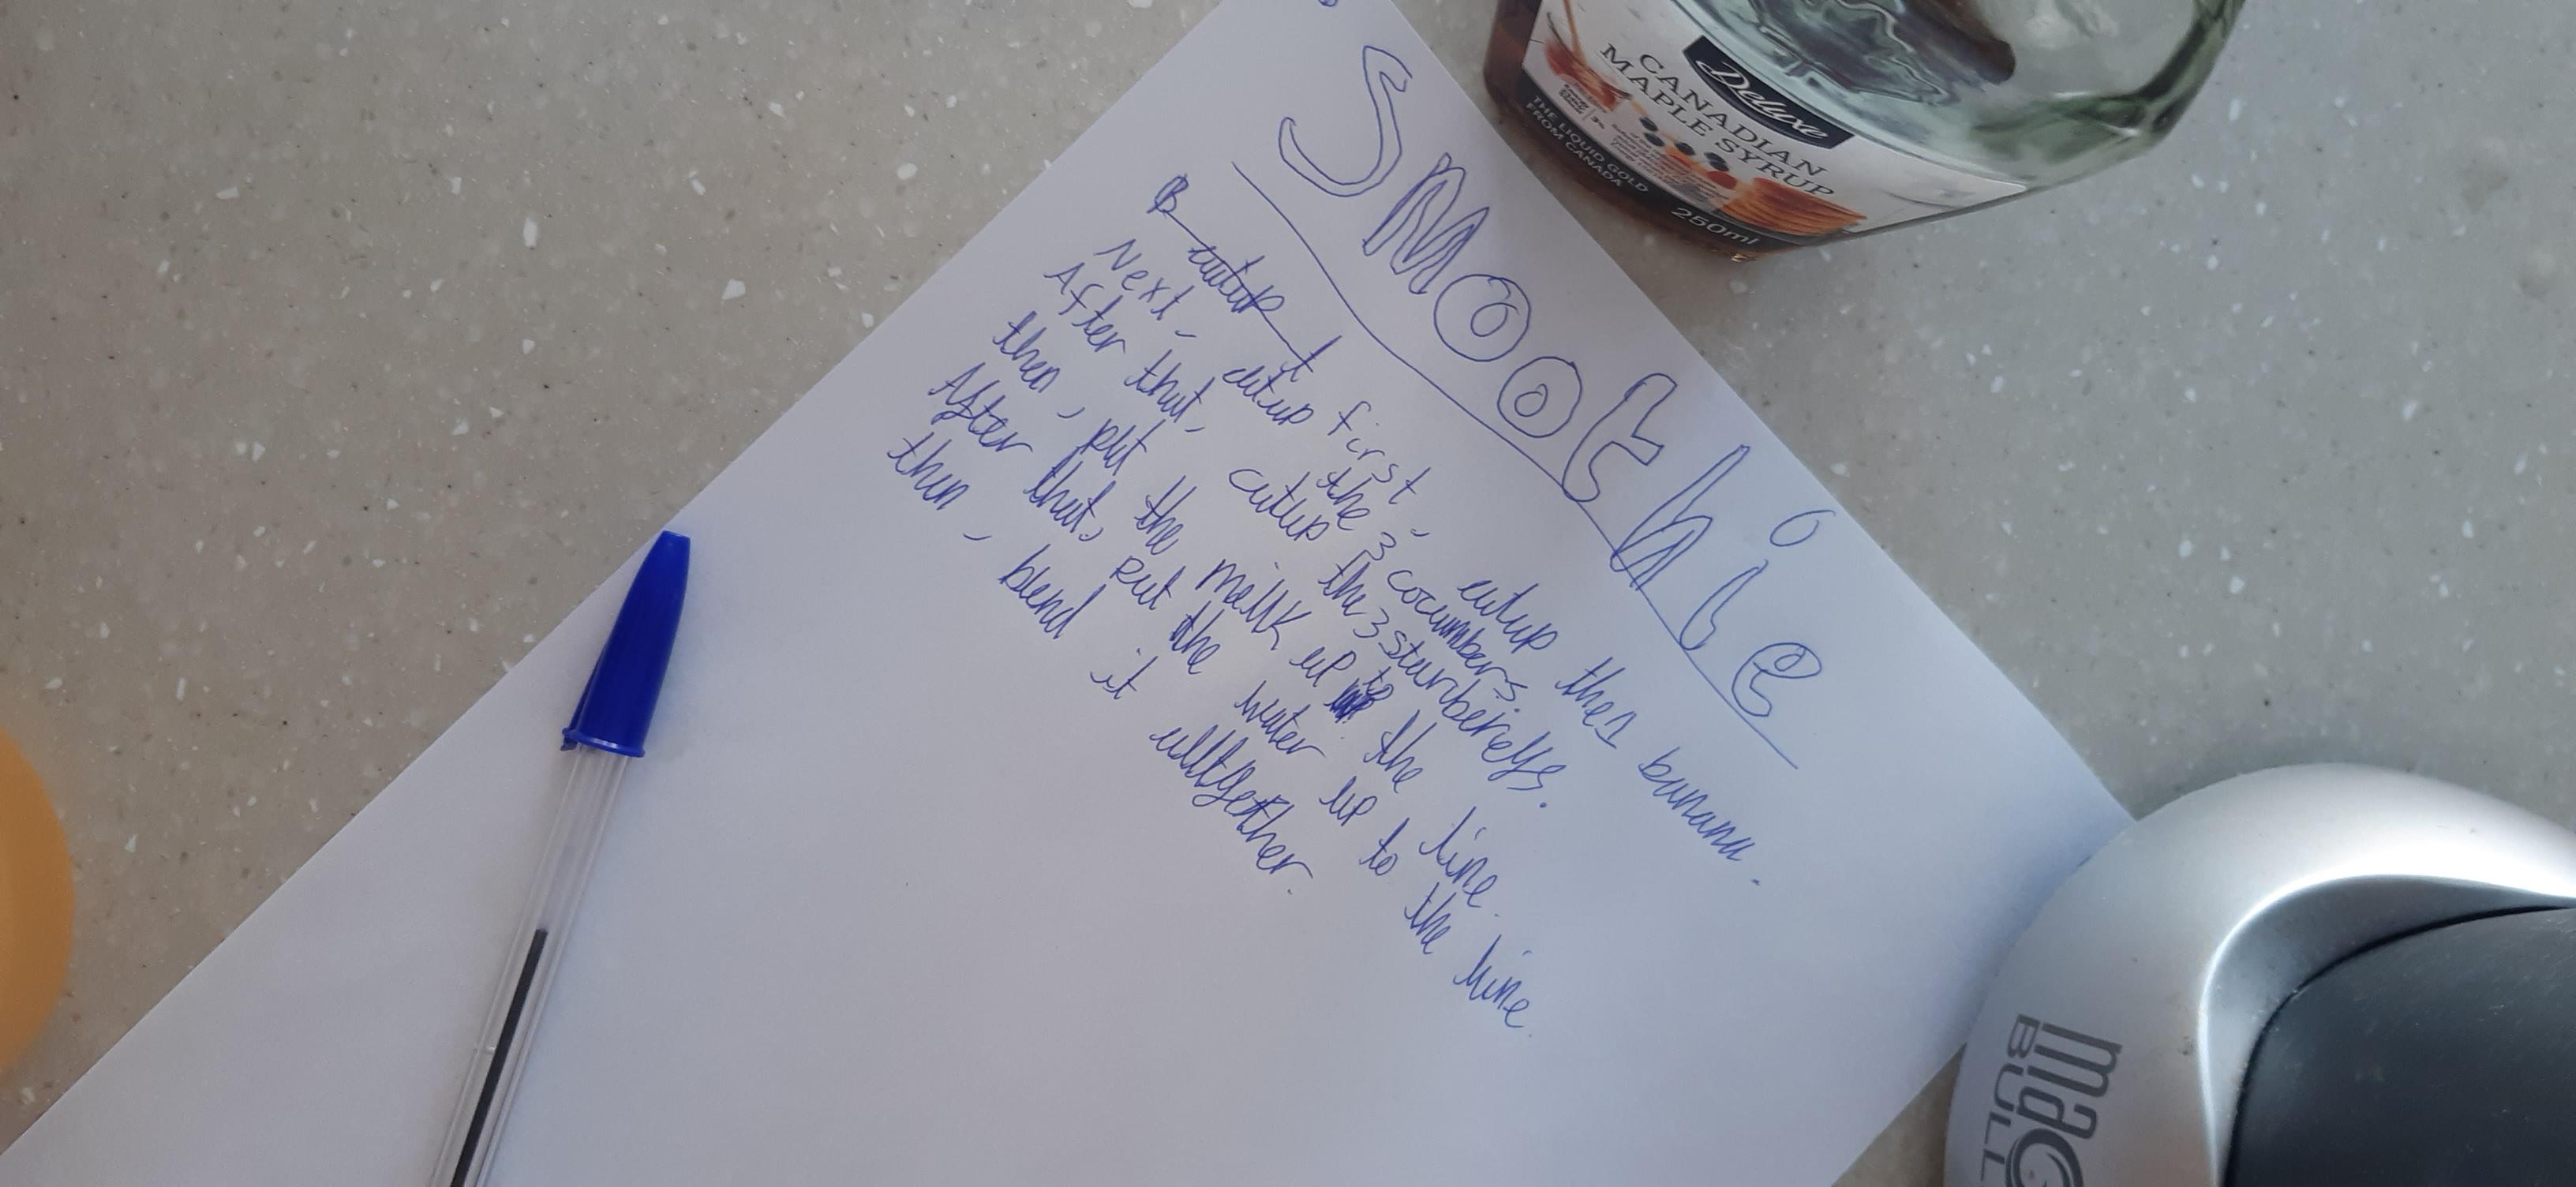 Smoothie
B cutup t first - cutup the 1 banana.
Next - cutup the 3 cocumbers.
After that, cutup the 3 sturbereys.
then, put the millk up to the line.
After that, put the water up to the line.
then - blend it alltgether.
Deluxe
CANADIAN
MAPLE SYRUP
THE LIQUID GOLD
FROM CANADA
250ml
magic
BULL